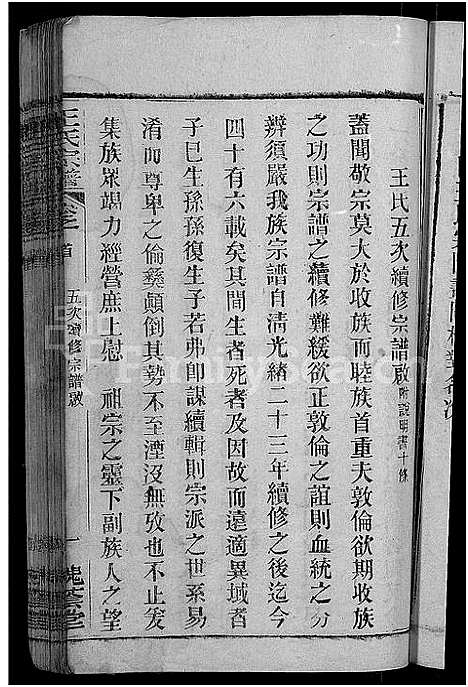 王氏五次續修宗譜啟附說明書十條
蓋聞敬宗莫大於收族而睦族首重夫敦倫欲期收族
之功則宗譜之續修難緩欲正敦倫之誼則血統之分
辨須嚴我族宗譜自清光緒二十三年續修之後迄今
四十有六載矣其間生者死者及因故而遠適異域者
子巳生孫孫復生子若弗卽謀續輯則宗派之世系易
淆而尊卑之倫彜顛倒其勢不至湮沒無攷也不止爰
集族眾竭力經營庶上慰 祖宗之靈下副族人之望
王氏宗譜 卷之首
五次續修宗譜啟
一
槐蔭堂
FamilySearch